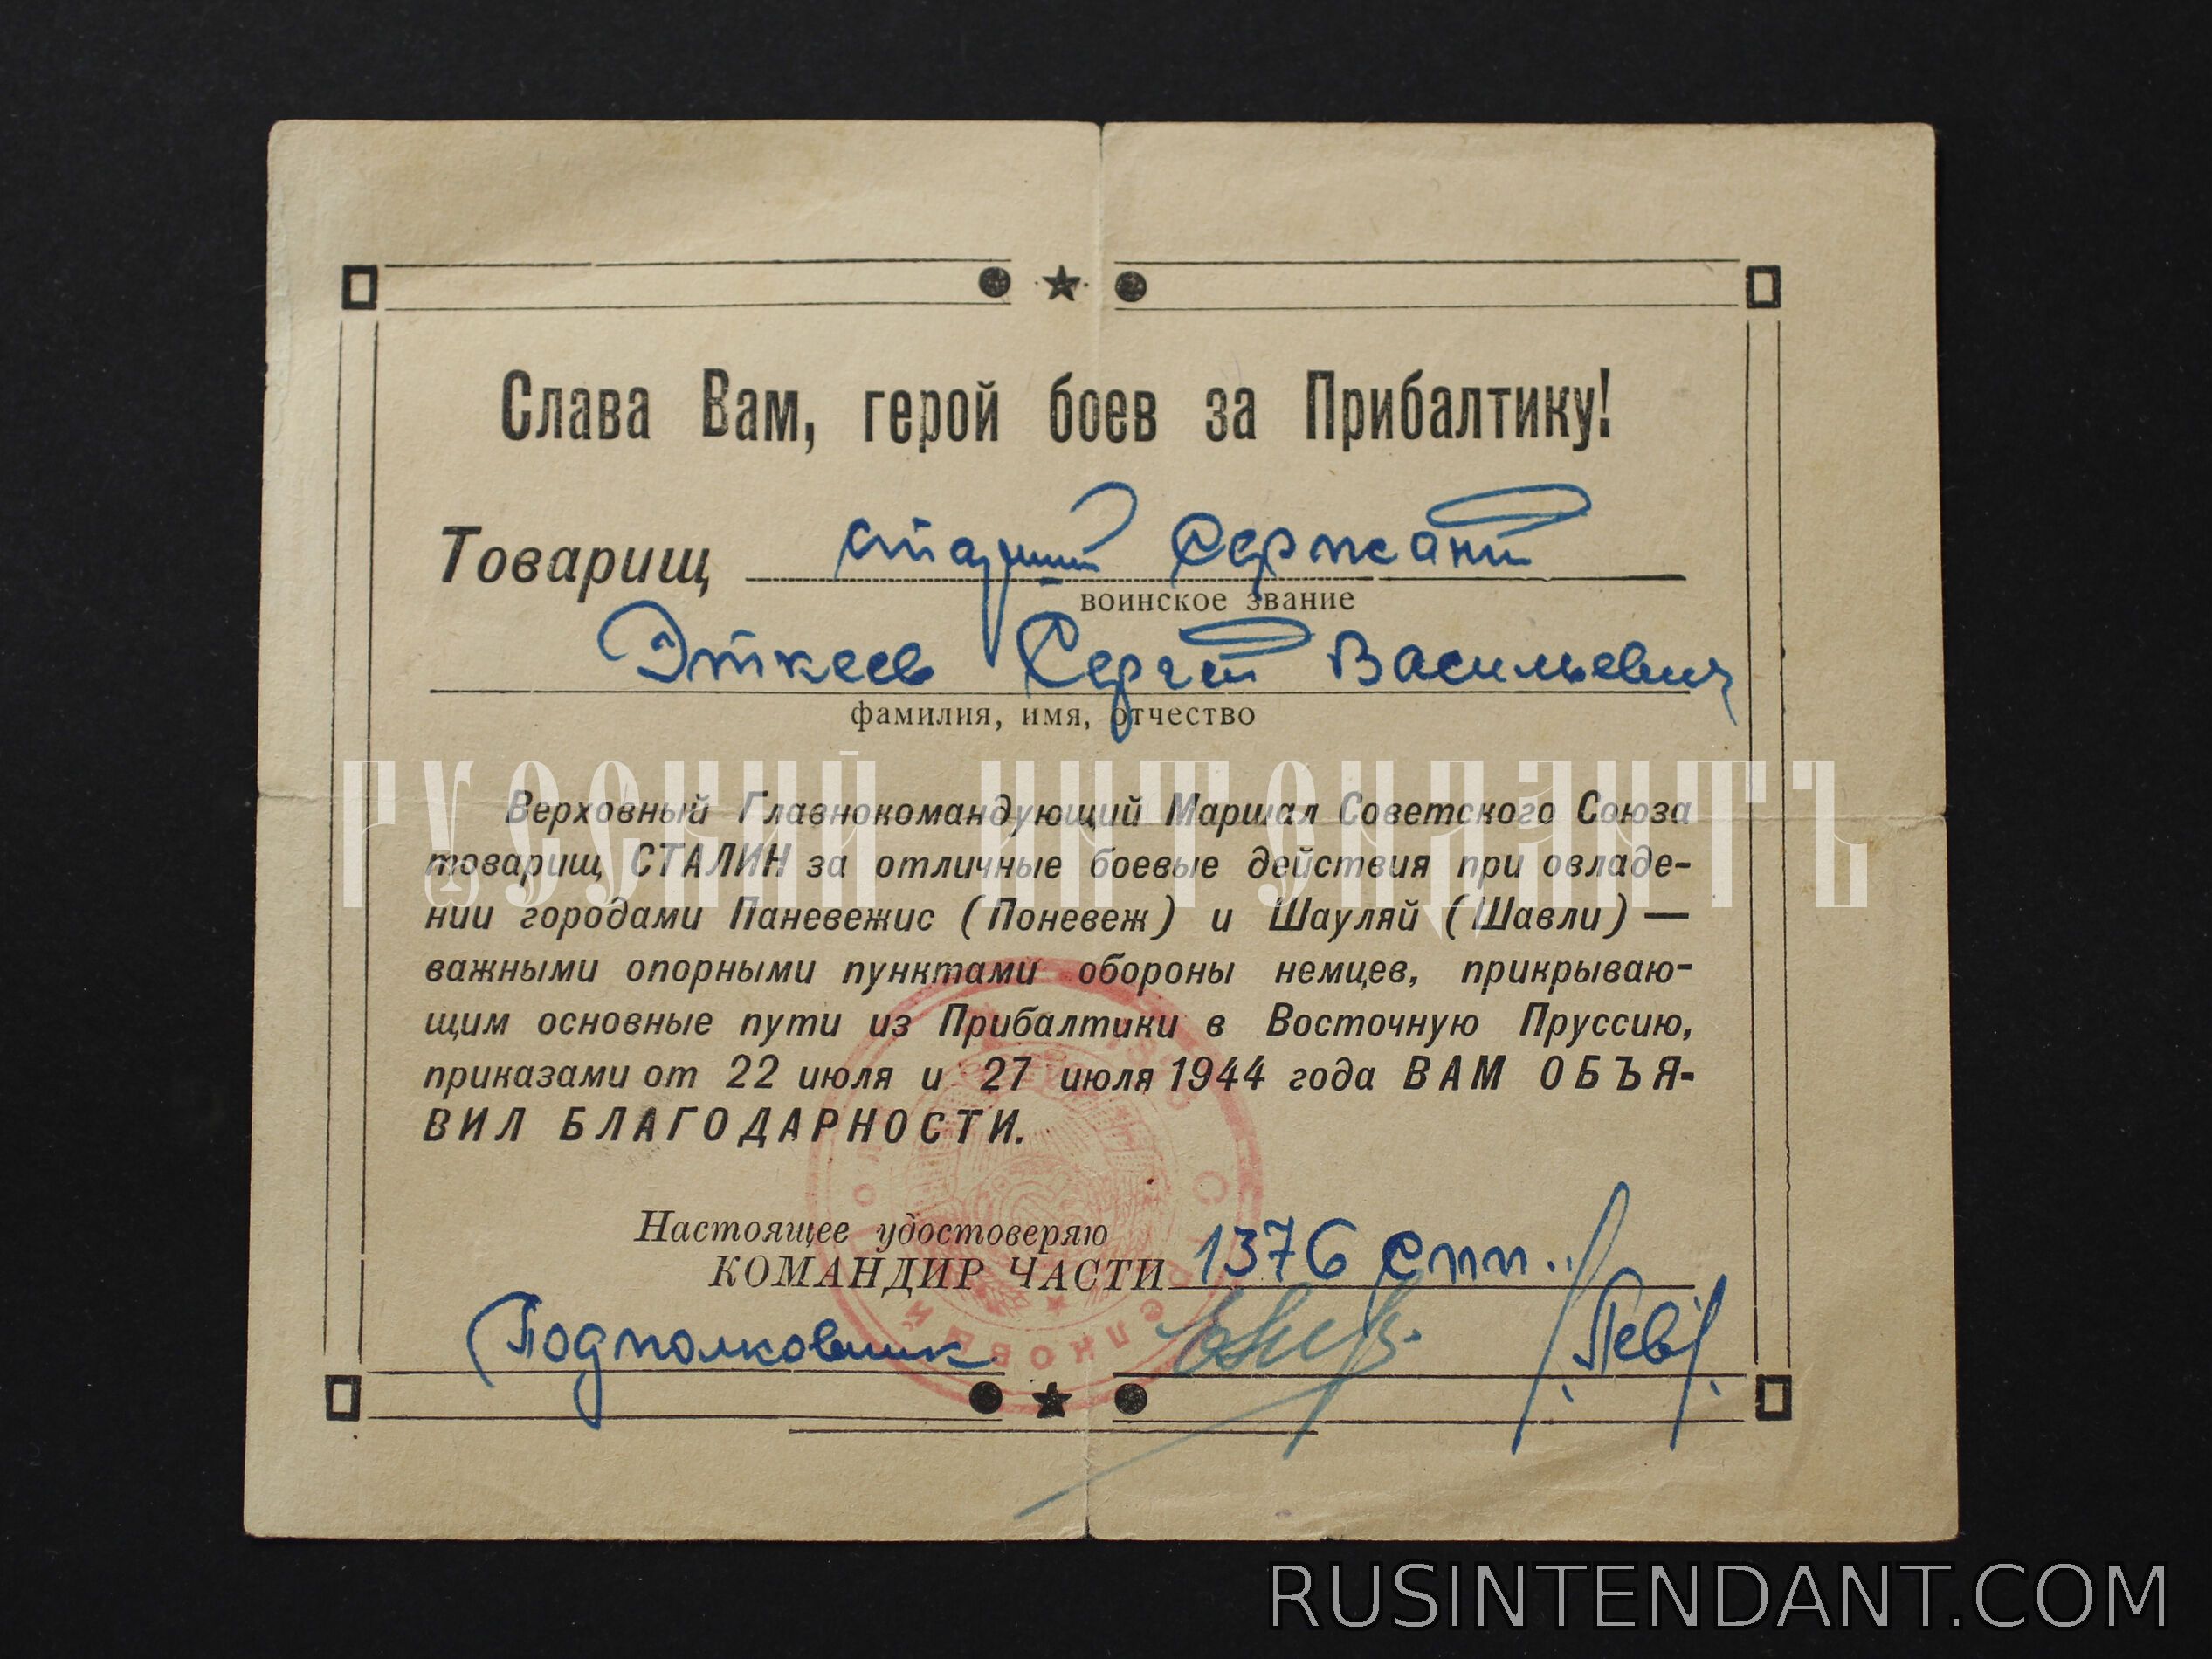 Слава Вам, герой боев за Прибалтику!
Товарищ старший Сержант
воинское звание
Эткеев Сергей Васильевич
фамилия, имя, отчество
РУССКИЙ ИНТЕНДАНТЪ
Верховный Главнокомандующий Маршал Советского Союза
товарищ СТАЛИН за отличные боевые действия при овладе-
нии городами Паневежис (Поневеж) и Шауляй (Шавли) —
важными опорными пунктами обороны немцев, прикрываю-
щим основные пути из Прибалтики в Восточную Пруссию,
приказами от 22 июля и 27 июля 1944 года ВАМ ОБЪЯ-
ВИЛ БЛАГОДАРНОСТИ.
Настоящее удостоверяю
КОМАНДИР ЧАСТИ 1376 спп.
Подполковник /Певř/
RUSINTENDANT.COM